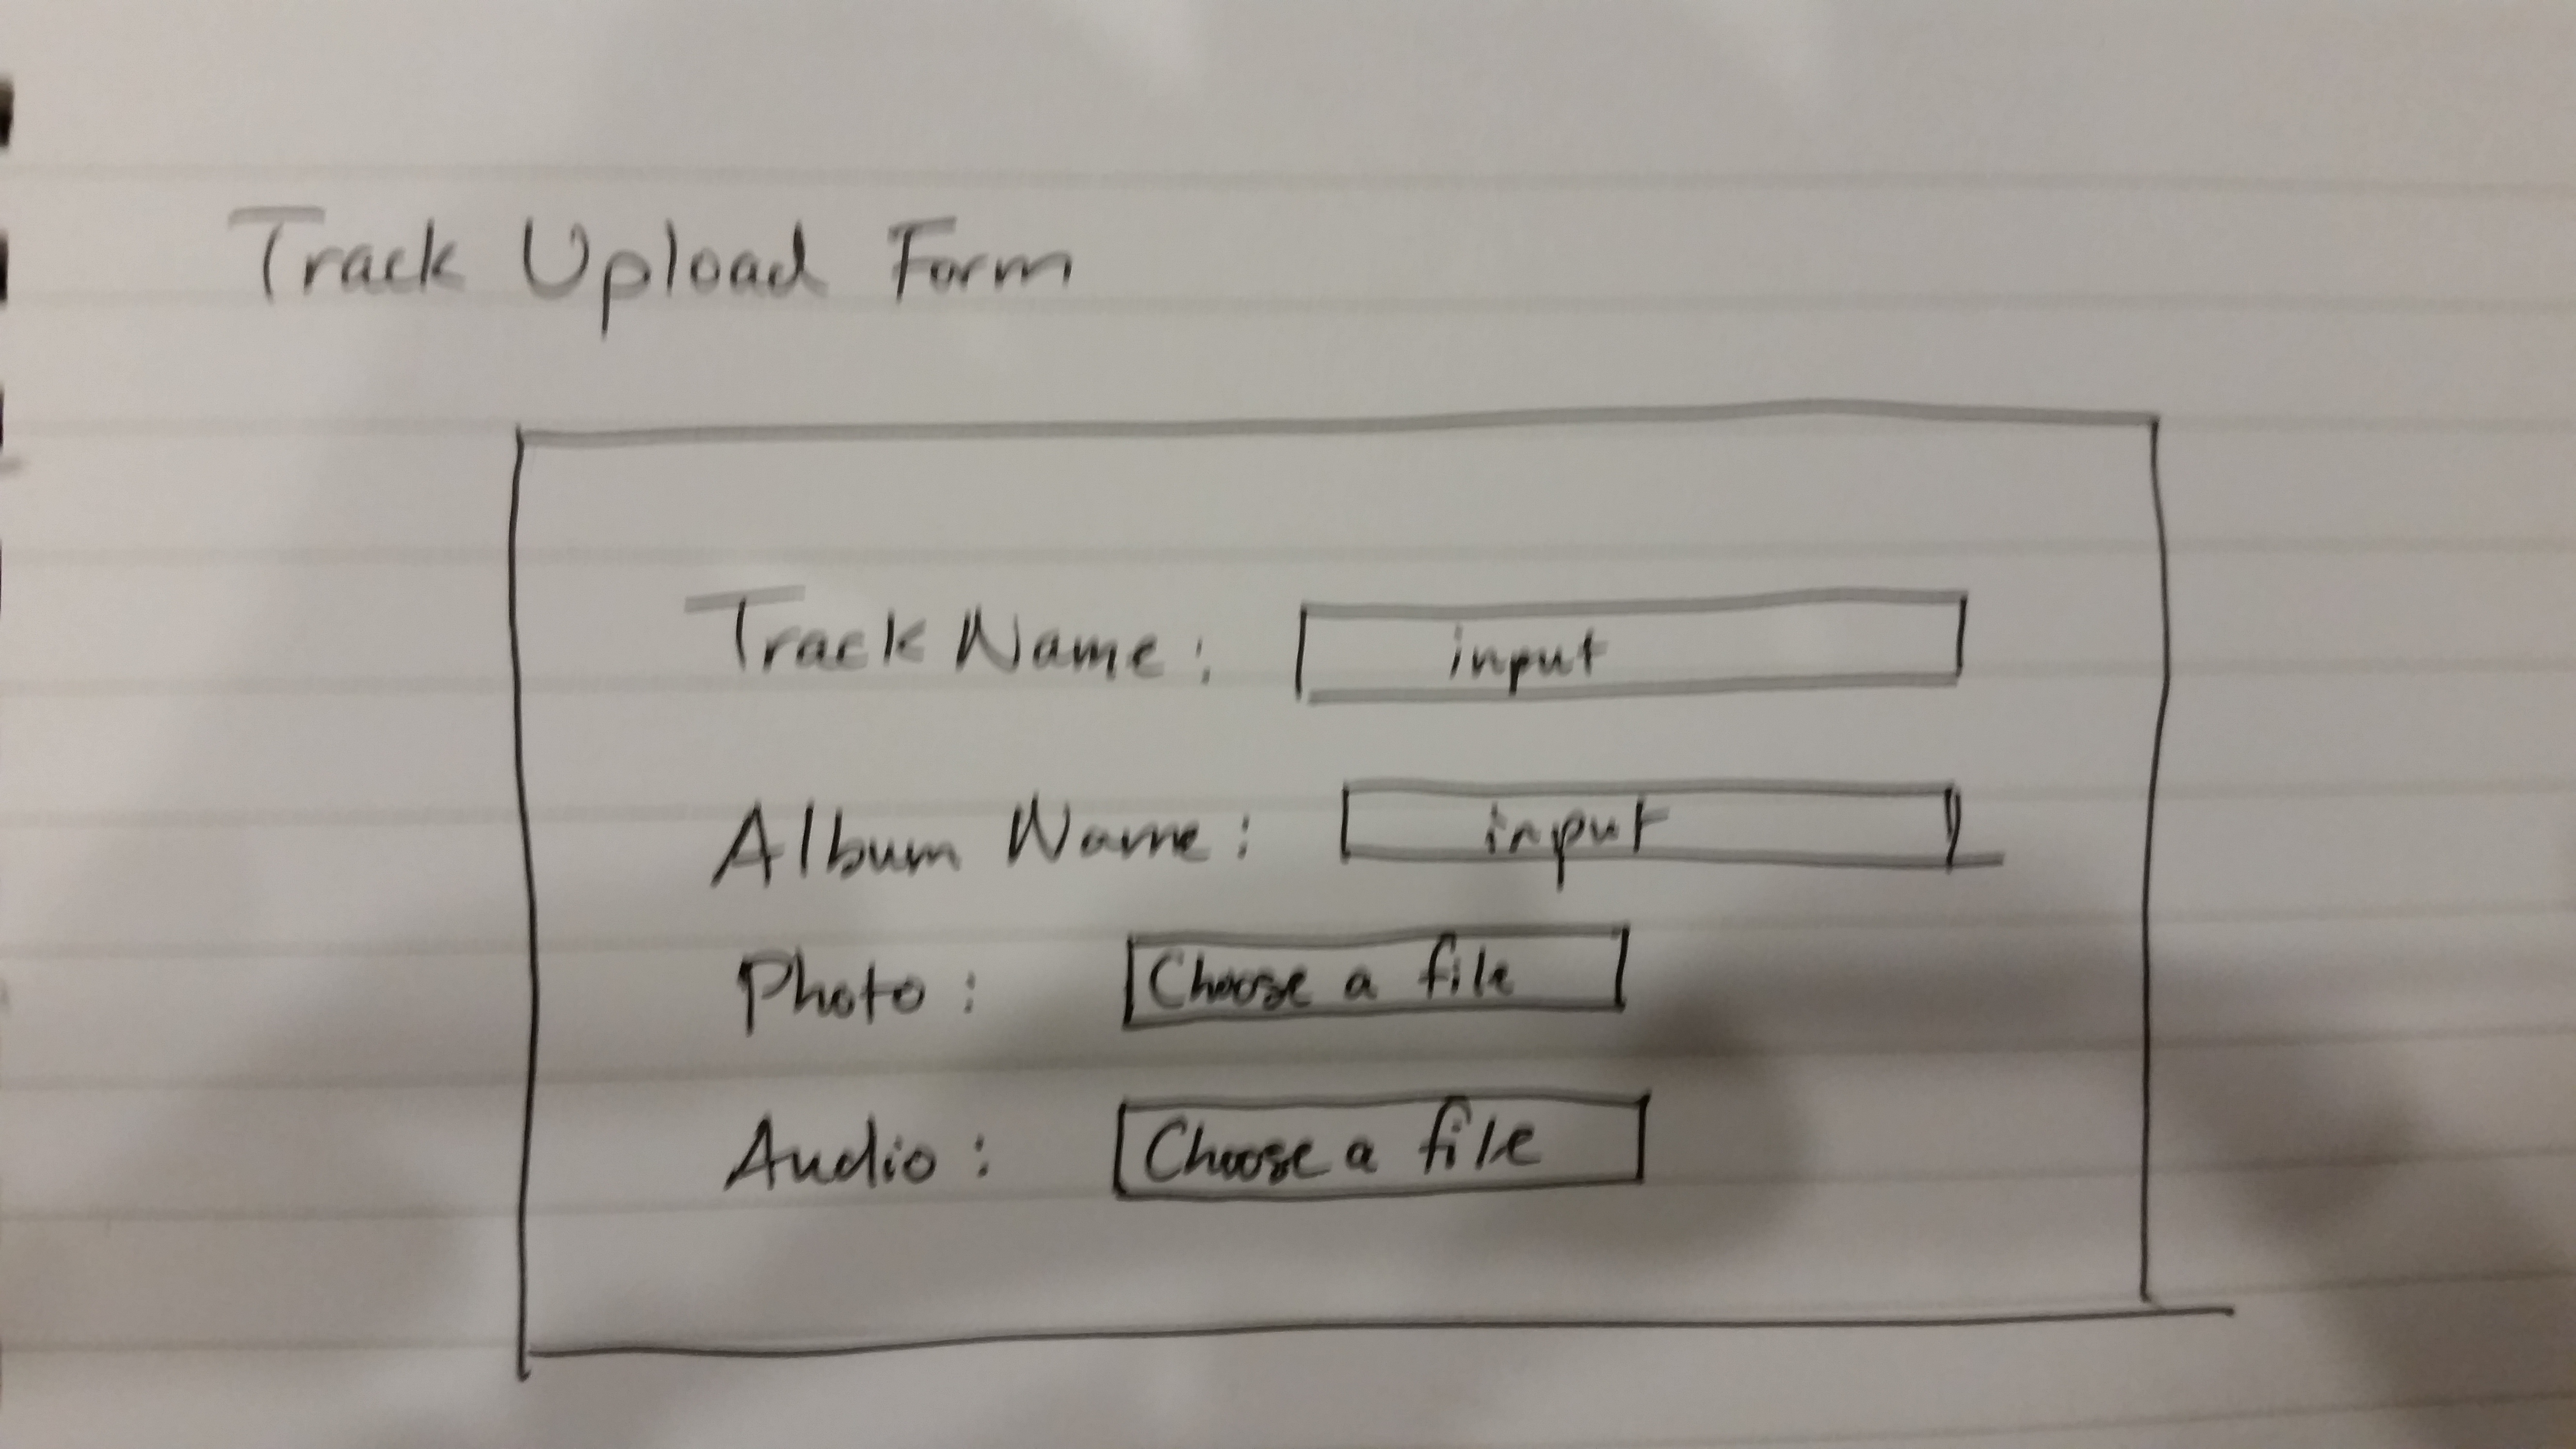 Track Upload Form
Track Name: input
Album Name: input
Photo: Choose a file
Audio: Choose a file